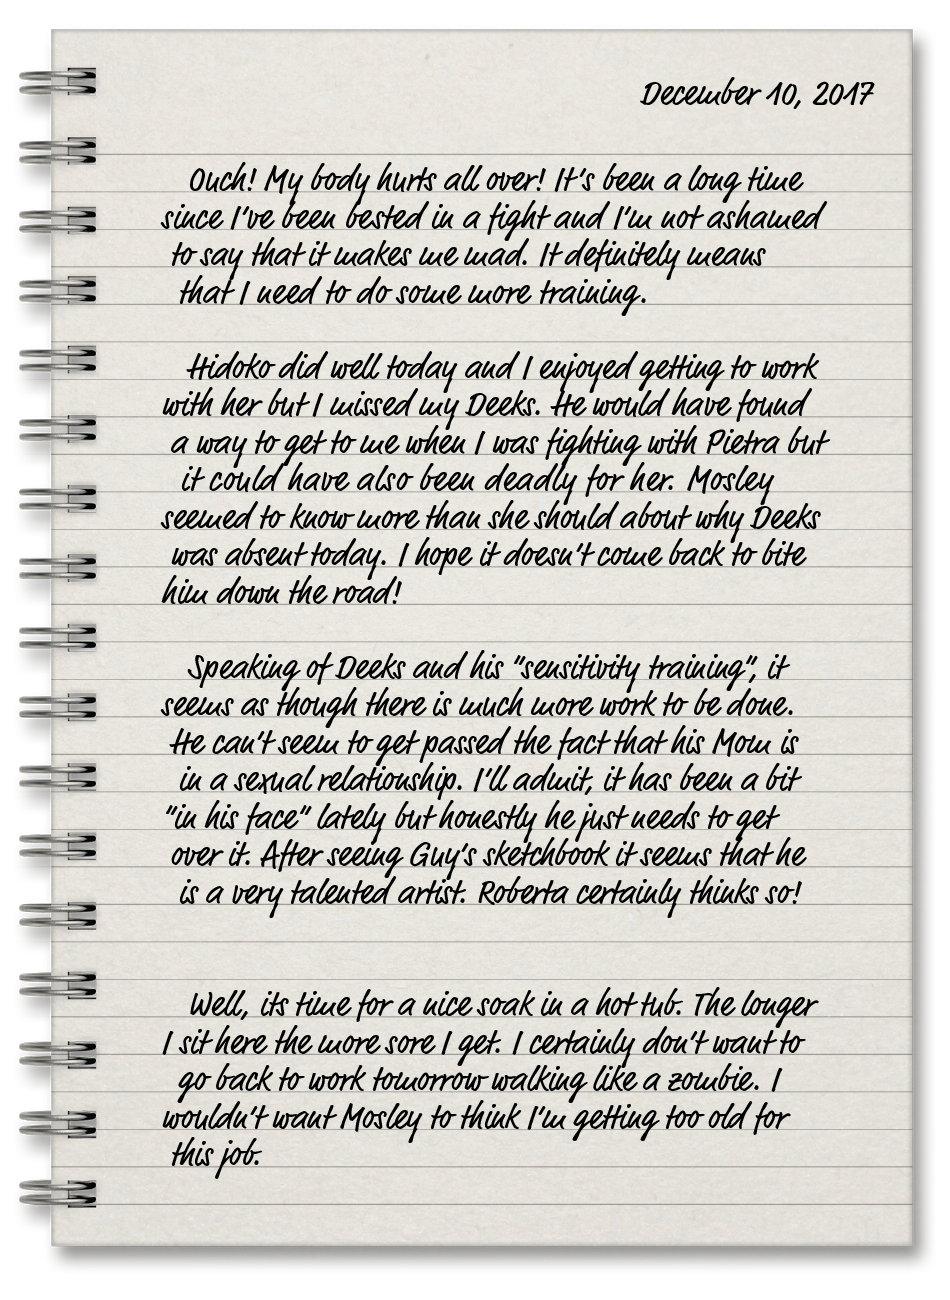 December 10, 2017
Ouch! My body hurts all over! It's been a long time
since I've been bested in a fight and I'm not ashamed
to say that it makes me mad. It definitely means
that I need to do some more training.
Hidoko did well today and I enjoyed getting to work
with her but I missed my Deeks. He would have found
a way to get to me when I was fighting with Pietra but
it could have also been deadly for her. Mosley
seemed to know more than she should about why Deeks
was absent today. I hope it doesn't come back to bite
him down the road!
Speaking of Deeks and his "sensitivity training", it
seems as though there is much more work to be done.
He can't seem to get passed the fact that his Mom is
in a sexual relationship. I'll admit, it has been a bit
"in his face" lately but honestly he just needs to get
over it. After seeing Guy's sketchbook it seems that he
is a very talented artist. Roberta certainly thinks so!
Well, its time for a nice soak in a hot tub. The longer
I sit here the more sore I get. I certainly don't want to
go back to work tomorrow walking like a zombie. I
wouldn't want Mosley to think I'm getting too old for
this job.